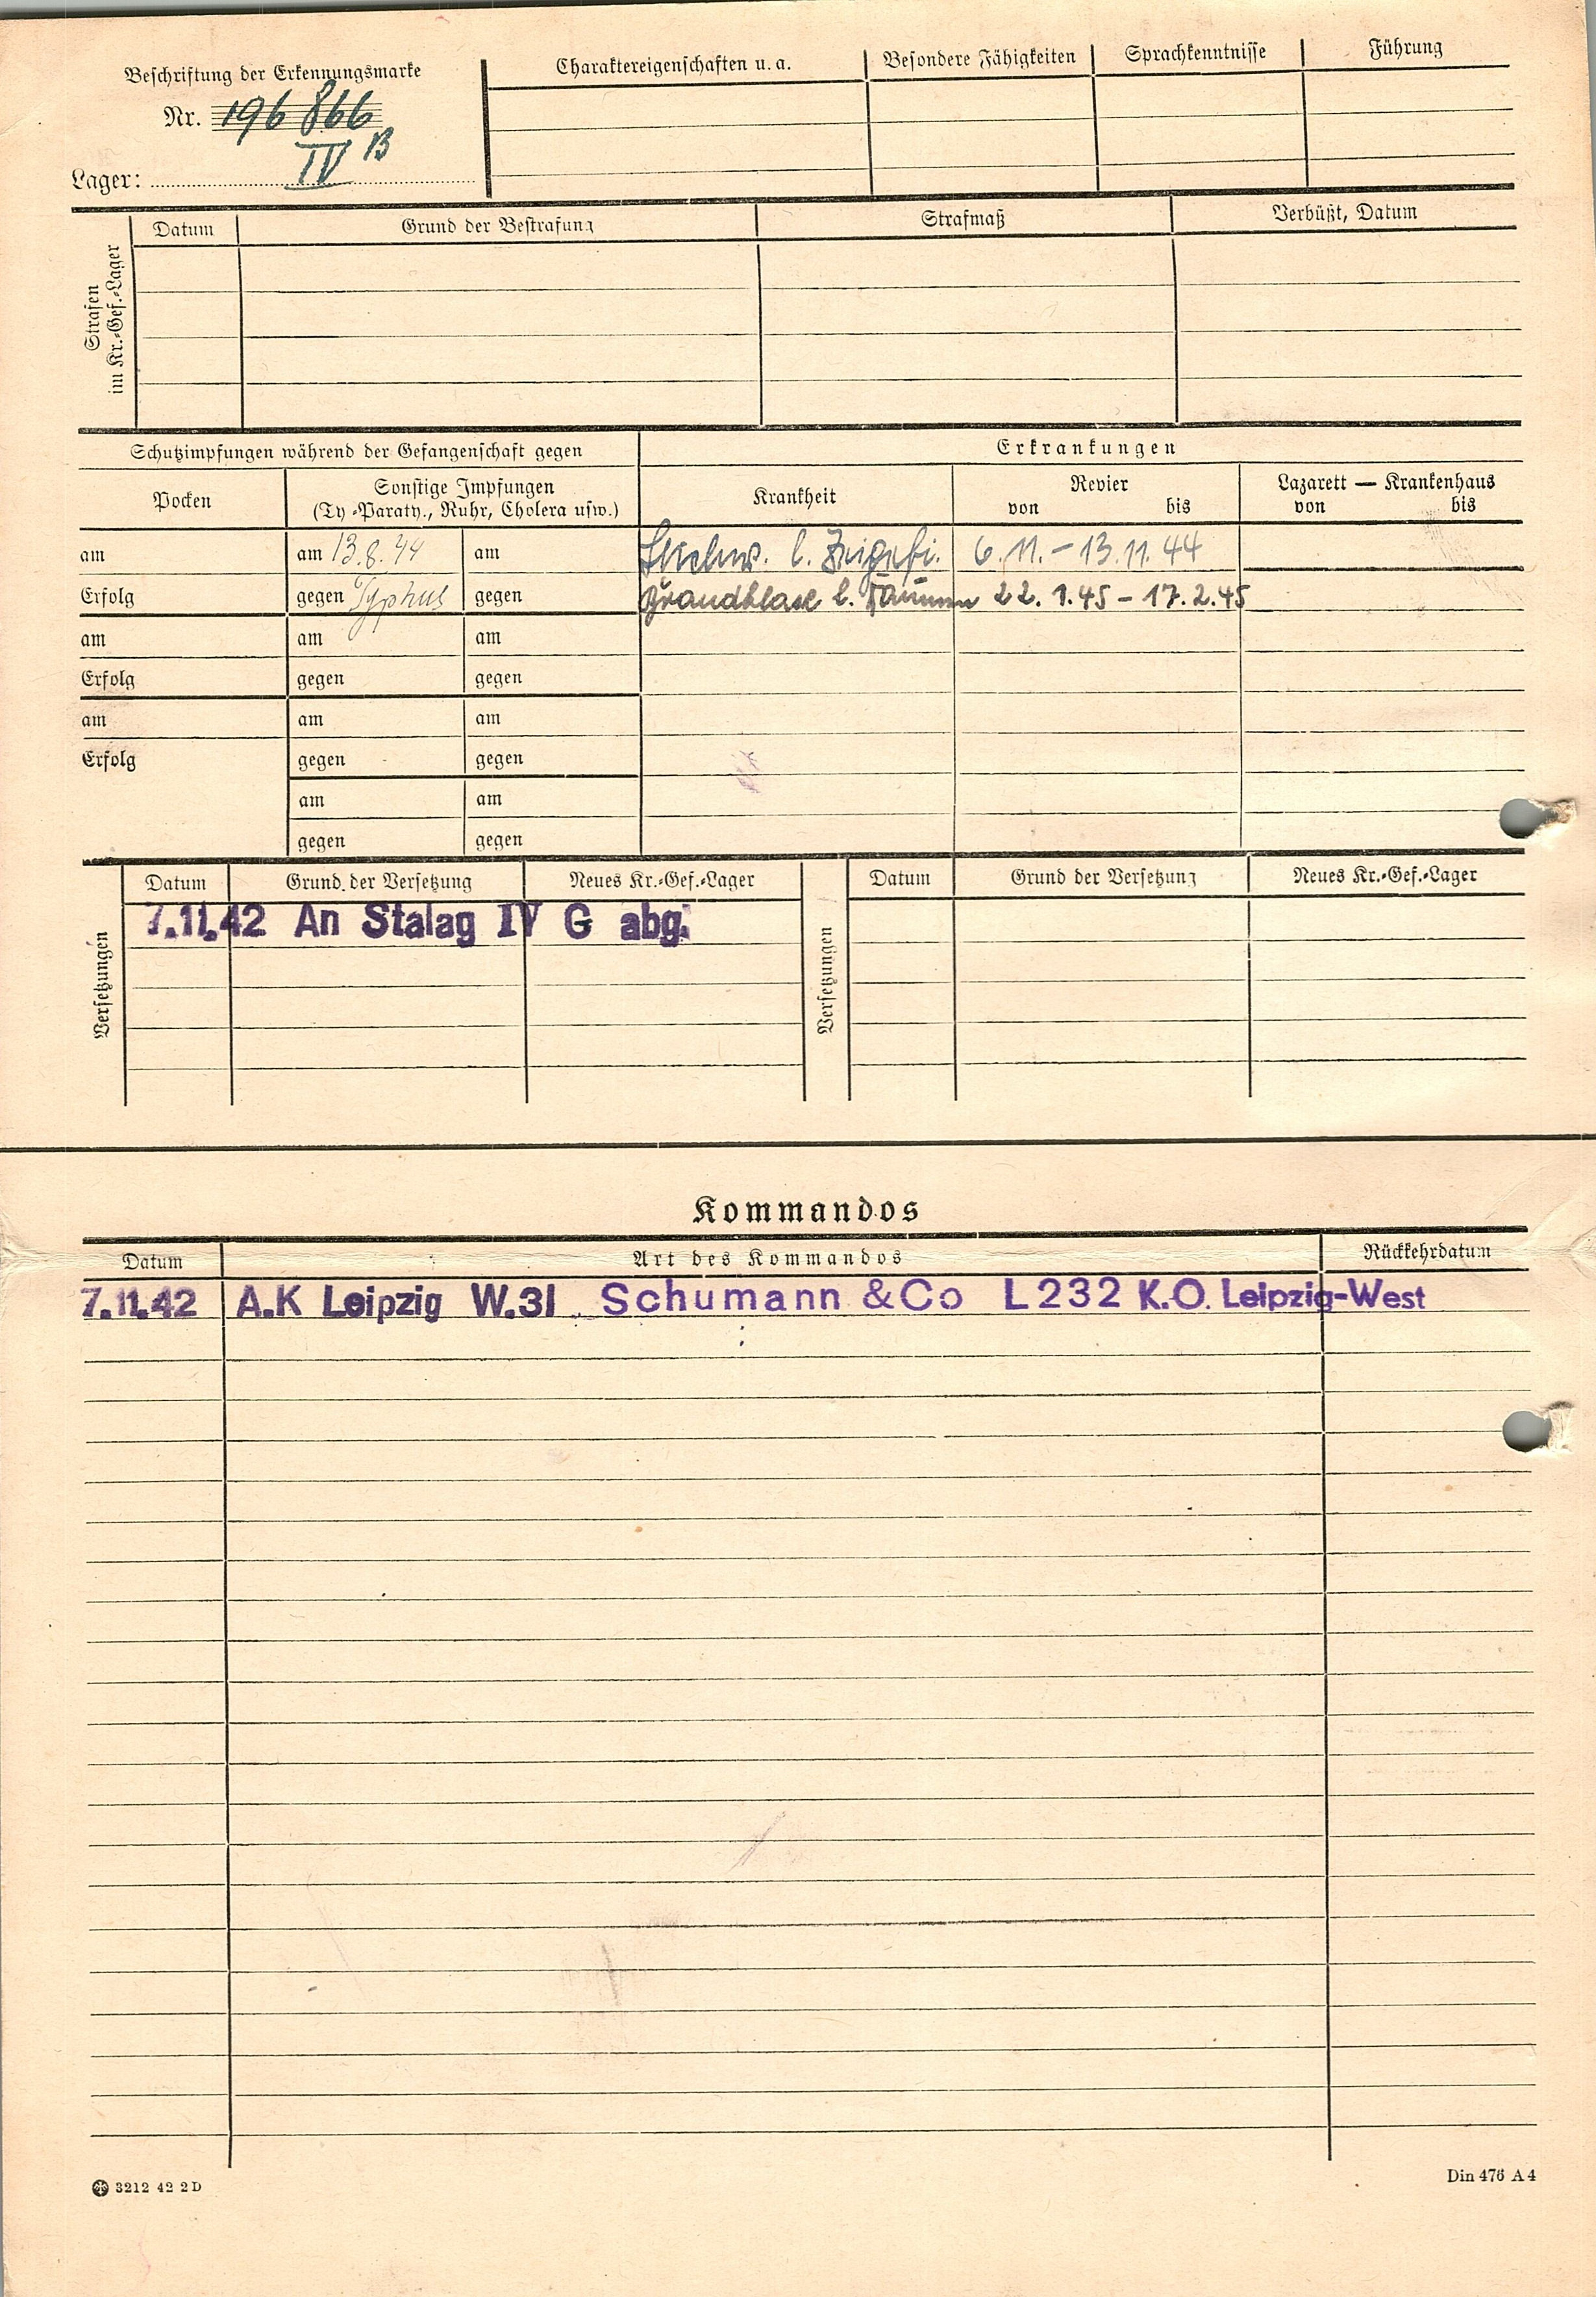 Beschriftung der Erkennungsmarke
Nr. 196 866
Lager: IV B
Charaktereigenschaften u. a. Besondere Fähigkeiten Sprachkenntnisse Führung
Strafen im Kr.-Gef.-Lager
Datum Grund der Bestrafung Strafmaß Verbüßt, Datum
Schutzimpfungen während der Gefangenschaft gegen Erkrankungen
Pocken Sonstige Impfungen Krankheit Revier Lazarett — Krankenhaus
(Ty-Paraty., Ruhr, Cholera usw.) von bis von bis
am am 13.8.44 am l. 6.11. - 13.11.44
Erfolg gegen Typhus gegen Brandblase l. Daumen 22.1.45 - 17.2.45
am am am
Erfolg gegen gegen
am am am
Erfolg gegen gegen
am am
gegen gegen
Versetzungen
Datum Grund der Versetzung Neues Kr.-Gef.-Lager
7.11.42 An Stalag IV G abg.
Versetzungen
Datum Grund der Versetzung Neues Kr.-Gef.-Lager
Kommandos
Datum Art des Kommandos Rückkehrdatum
7.11.42 A.K Leipzig W.31 Schumann & Co L 232 K.O. Leipzig-West
3212 42 2 D
Din 476 A 4